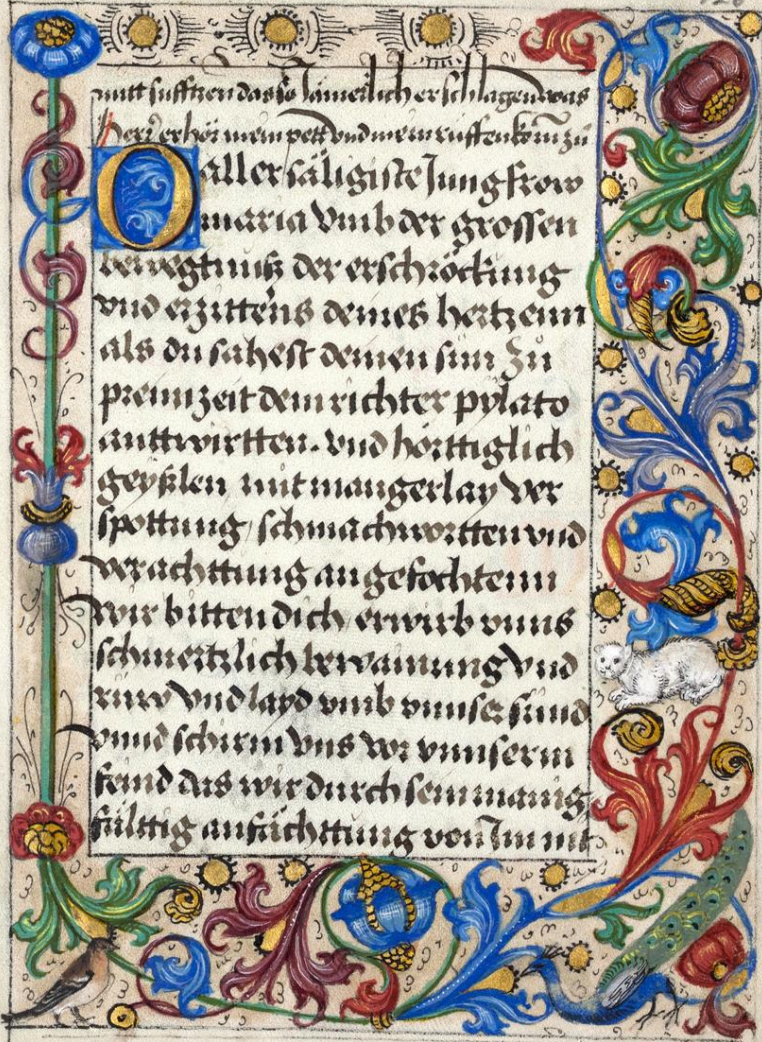 mitt sufftzen das so Jämerlich erschlagen was
herr erhör mein pett vnd mein ruffen kom zů
O aller säligiste Jungkfrow
maria vmb der grossen
bewegtnuß der erschröckung
vnd erzitterns deines hertzenn
als du sahest deinen sun zů
preimzeit dem richter pylato
anttwirtten. vnd hörttiglich
geyßlen mit mangerlay ver
spottung, schmachwortten vnd
verachttung angefochtenn
wir bitten dich erwirb vnns
schmertzlich bewainung vnd
rüw vnd layd vmb vnnser sünd
vnnd schirm vns vor vnnserm
feind das wir durch sein manig
fälttig anfächttung von Im nit